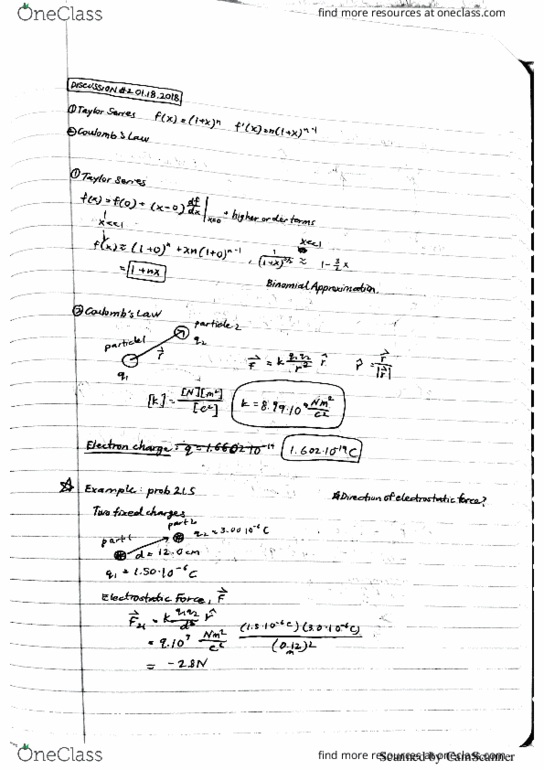 OneClass
find more resources at oneclass.com
DISCUSSION #2 01.18.2018
① Taylor Series f(x) = (1+x)^n f'(x) = n(1+x)^{n-1}
② Coulomb's Law
① Taylor Series
f(x) = f(0) + (x-0) df/dx |x=0 + higher order terms
x<<1
f(x) ≈ (1+0)^n + xn(1+0)^{n-1} , 1/(1+x)^{3/2} ≈ 1 - 3/2 x
x<<1
= 1+nx
Binomial Approximation.
② Coulomb's Law
particle 2
q2
particle 1
r⃗
q1
F⃗ = k q1q2/r² r̂ r̂ = r⃗/|r⃗|
[k] = [N][m²]/[C²] k = 8.99·10^9 Nm²/C²
Electron charge: q = 1.6602·10^-19 1.602·10^-19 C
☆ Example: prob 21.5
Direction of electrostatic force?
Two fixed charges
part 2
q2 = 3.00·10^-6 C
part 1
d = 12.0cm
q1 = 1.50·10^-6 C
Electrostatic Force, F⃗
F⃗21 = k q1q2/d² r̂
= 9.10^9 Nm²/C² (1.5·10^-6 C)(3.0·10^-6 C)/(0.12)²
m
= -2.8N
OneClass
find more resources at oneclass.com
Scanned by CamScanner